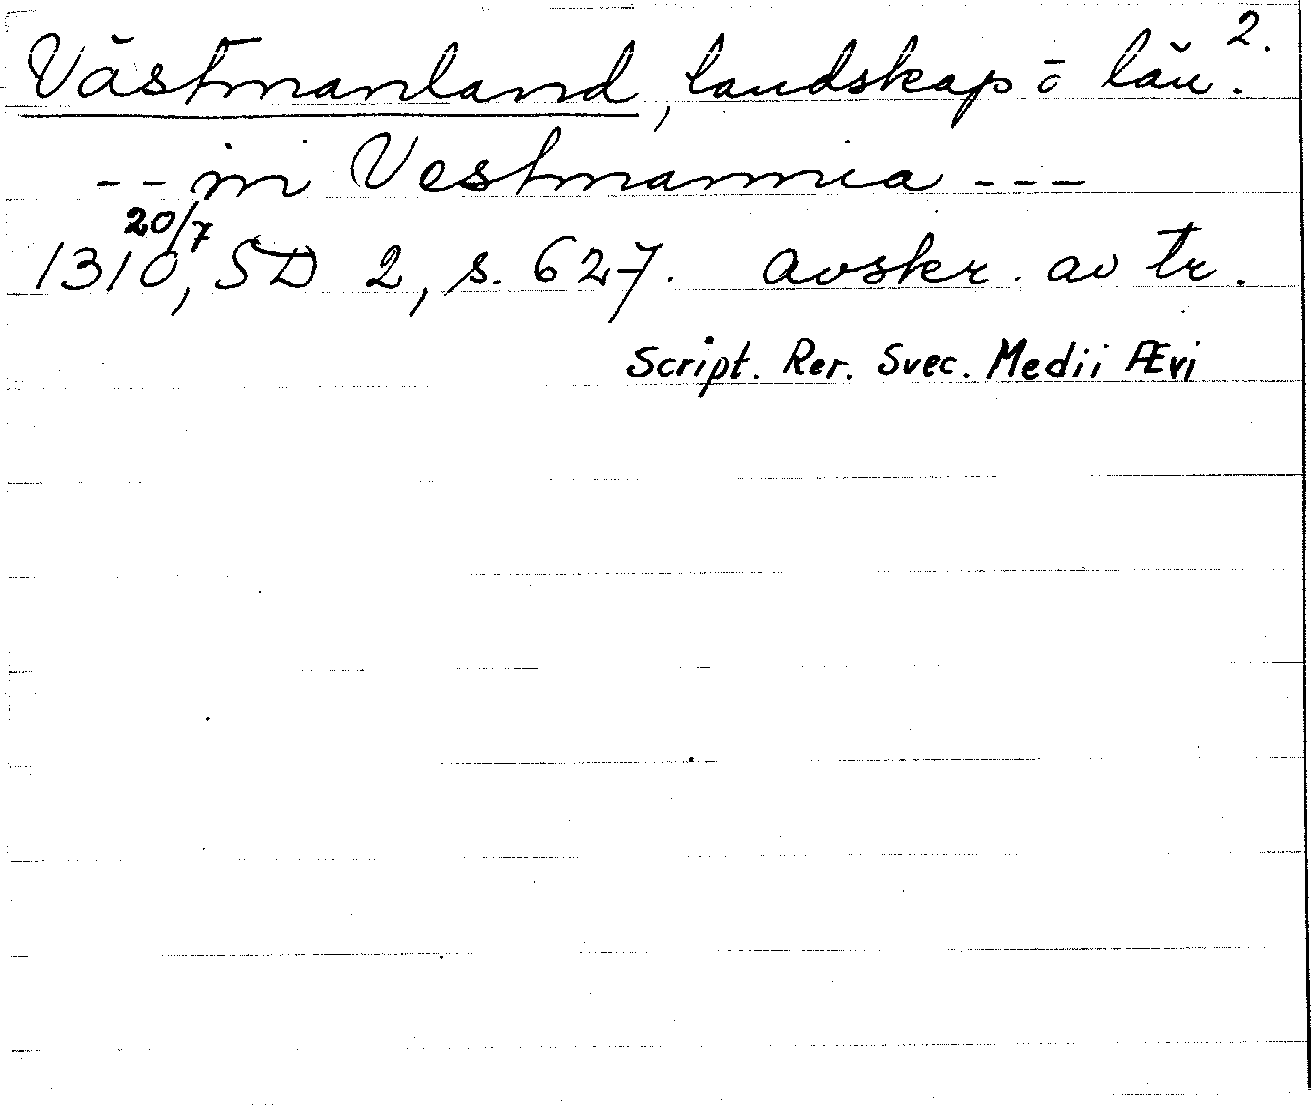 2.
Västmanland, landskap ō län.
-- in Vestmannia ---
20/7
1310, SD 2, s. 627. avskr. av tr.
Script. Rer. Svec. Medii Ævi